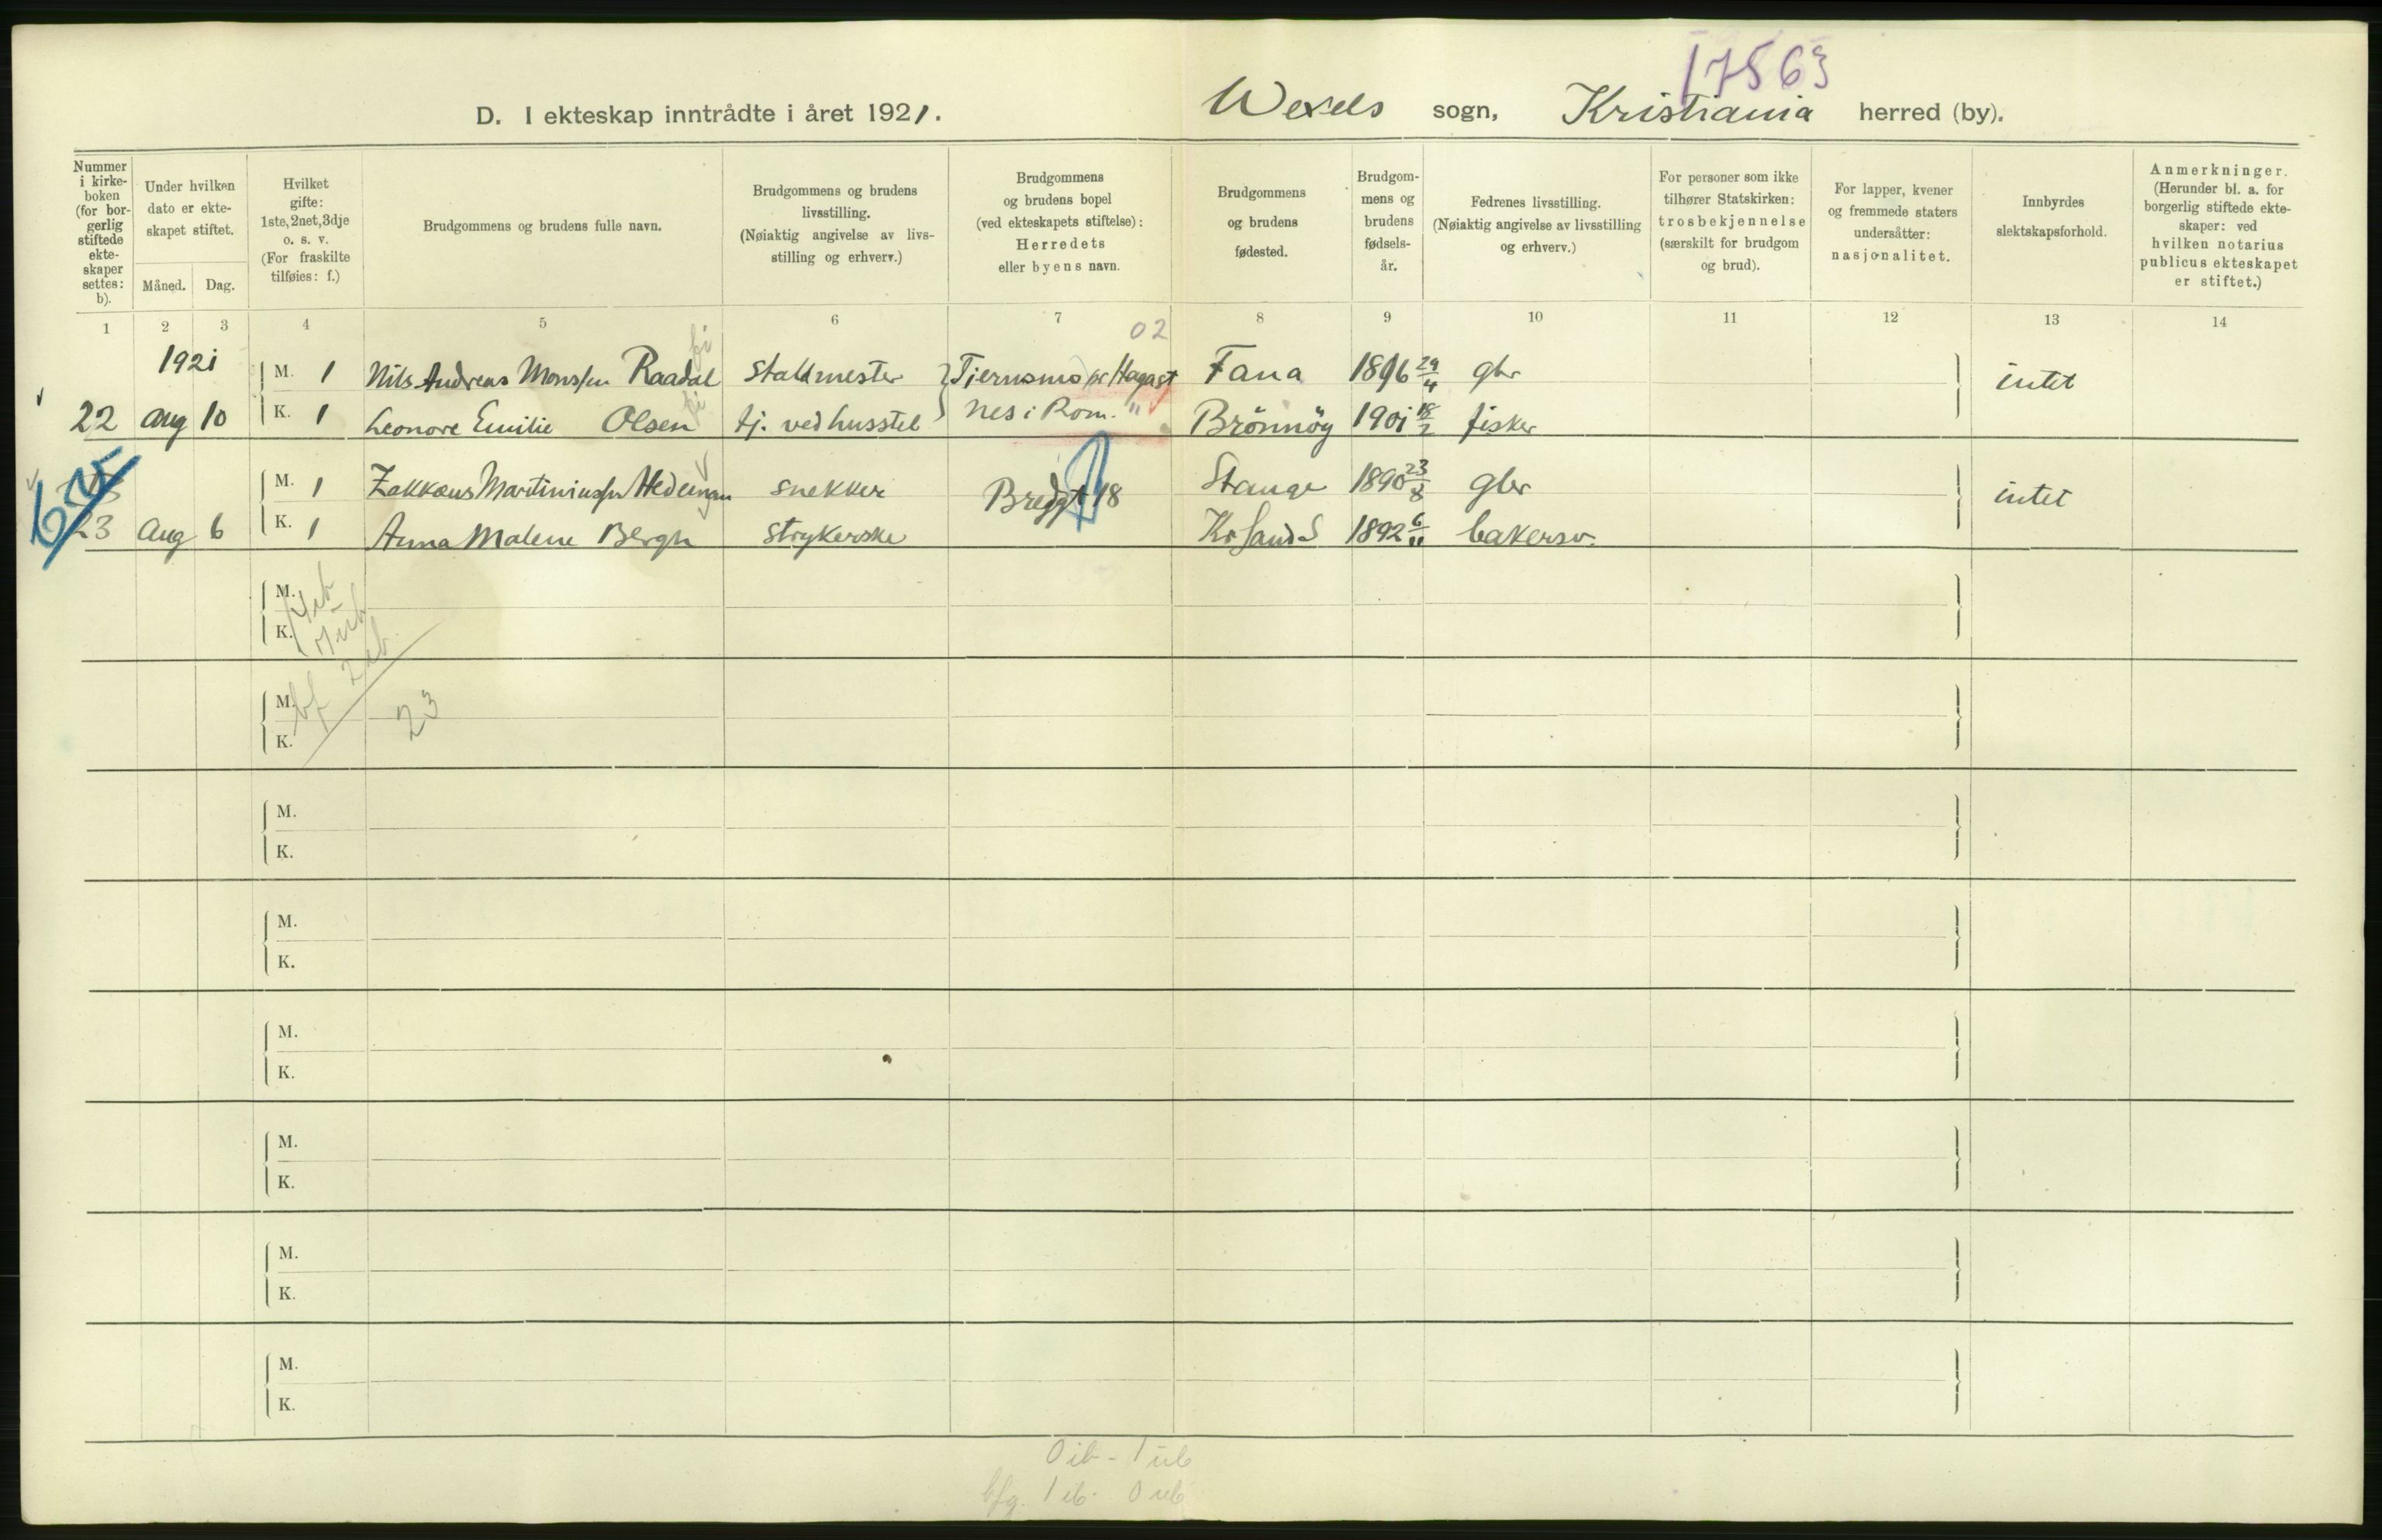 17563
D. I ekteskap inntrådte i året 1921. Wexels sogn, Kristiania herred (by).
Nummer i kirke-boken (for bor-gerlig stiftede ekte-skaper settes: b).
Under hvilken dato er ekte-skapet stiftet.
Måned. Dag.
Hvilket gifte: 1ste, 2net, 3dje o. s. v. (For fraskilte tilføies: f.)
Brudgommens og brudens fulle navn.
Brudgommens og brudens livsstilling. (Nøiaktig angivelse av livs-stilling og erhverv.)
Brudgommens og brudens bopel (ved ekteskapets stiftelse): Herredets eller byens navn.
Brudgommens og brudens fødested.
Brudgom-mens og brudens fødsels-år.
Fedrenes livsstilling. (Nøiaktig angivelse av livsstilling og erhverv.)
For personer som ikke tilhører Statskirken: trosbekjennelse (særskilt for brudgom og brud).
For lapper, kvener og fremmede staters undersåtter: nasjonalitet.
Innbyrdes slektskapsforhold.
Anmerkninger. (Herunder bl. a. for borgerlig stiftede ekte-skaper: ved hvilken notarius publicus ekteskapet er stiftet.)
1 2 3 4 5 6 7 8 9 10 11 12 13 14
02
1921
M. 1 Nils Andreas Monssen Raadal Staldmester pr Hagast Fana 1896 29/4 gbr intet
22 Aug 10 K. 1 Leonore Emilie Olsen tj. ved husstel nes i Rom. " Brönnöy 1901 18/2 fisker
M. 1 Zakkæus Martiniussen snekker Bredgt 18 Stange 1890 23/8 gbr intet
23 Aug 6 K. 1 Anna Malene Bergh strykerske KrsandS 1892 6/11 bakersv.
M.
K.
M. 23
K.
M.
K.
M.
K.
M.
K.
M.
K.
M.
K.
M.
K.
0 ib - 1 ub
bfg. 1 ib - 0 ub